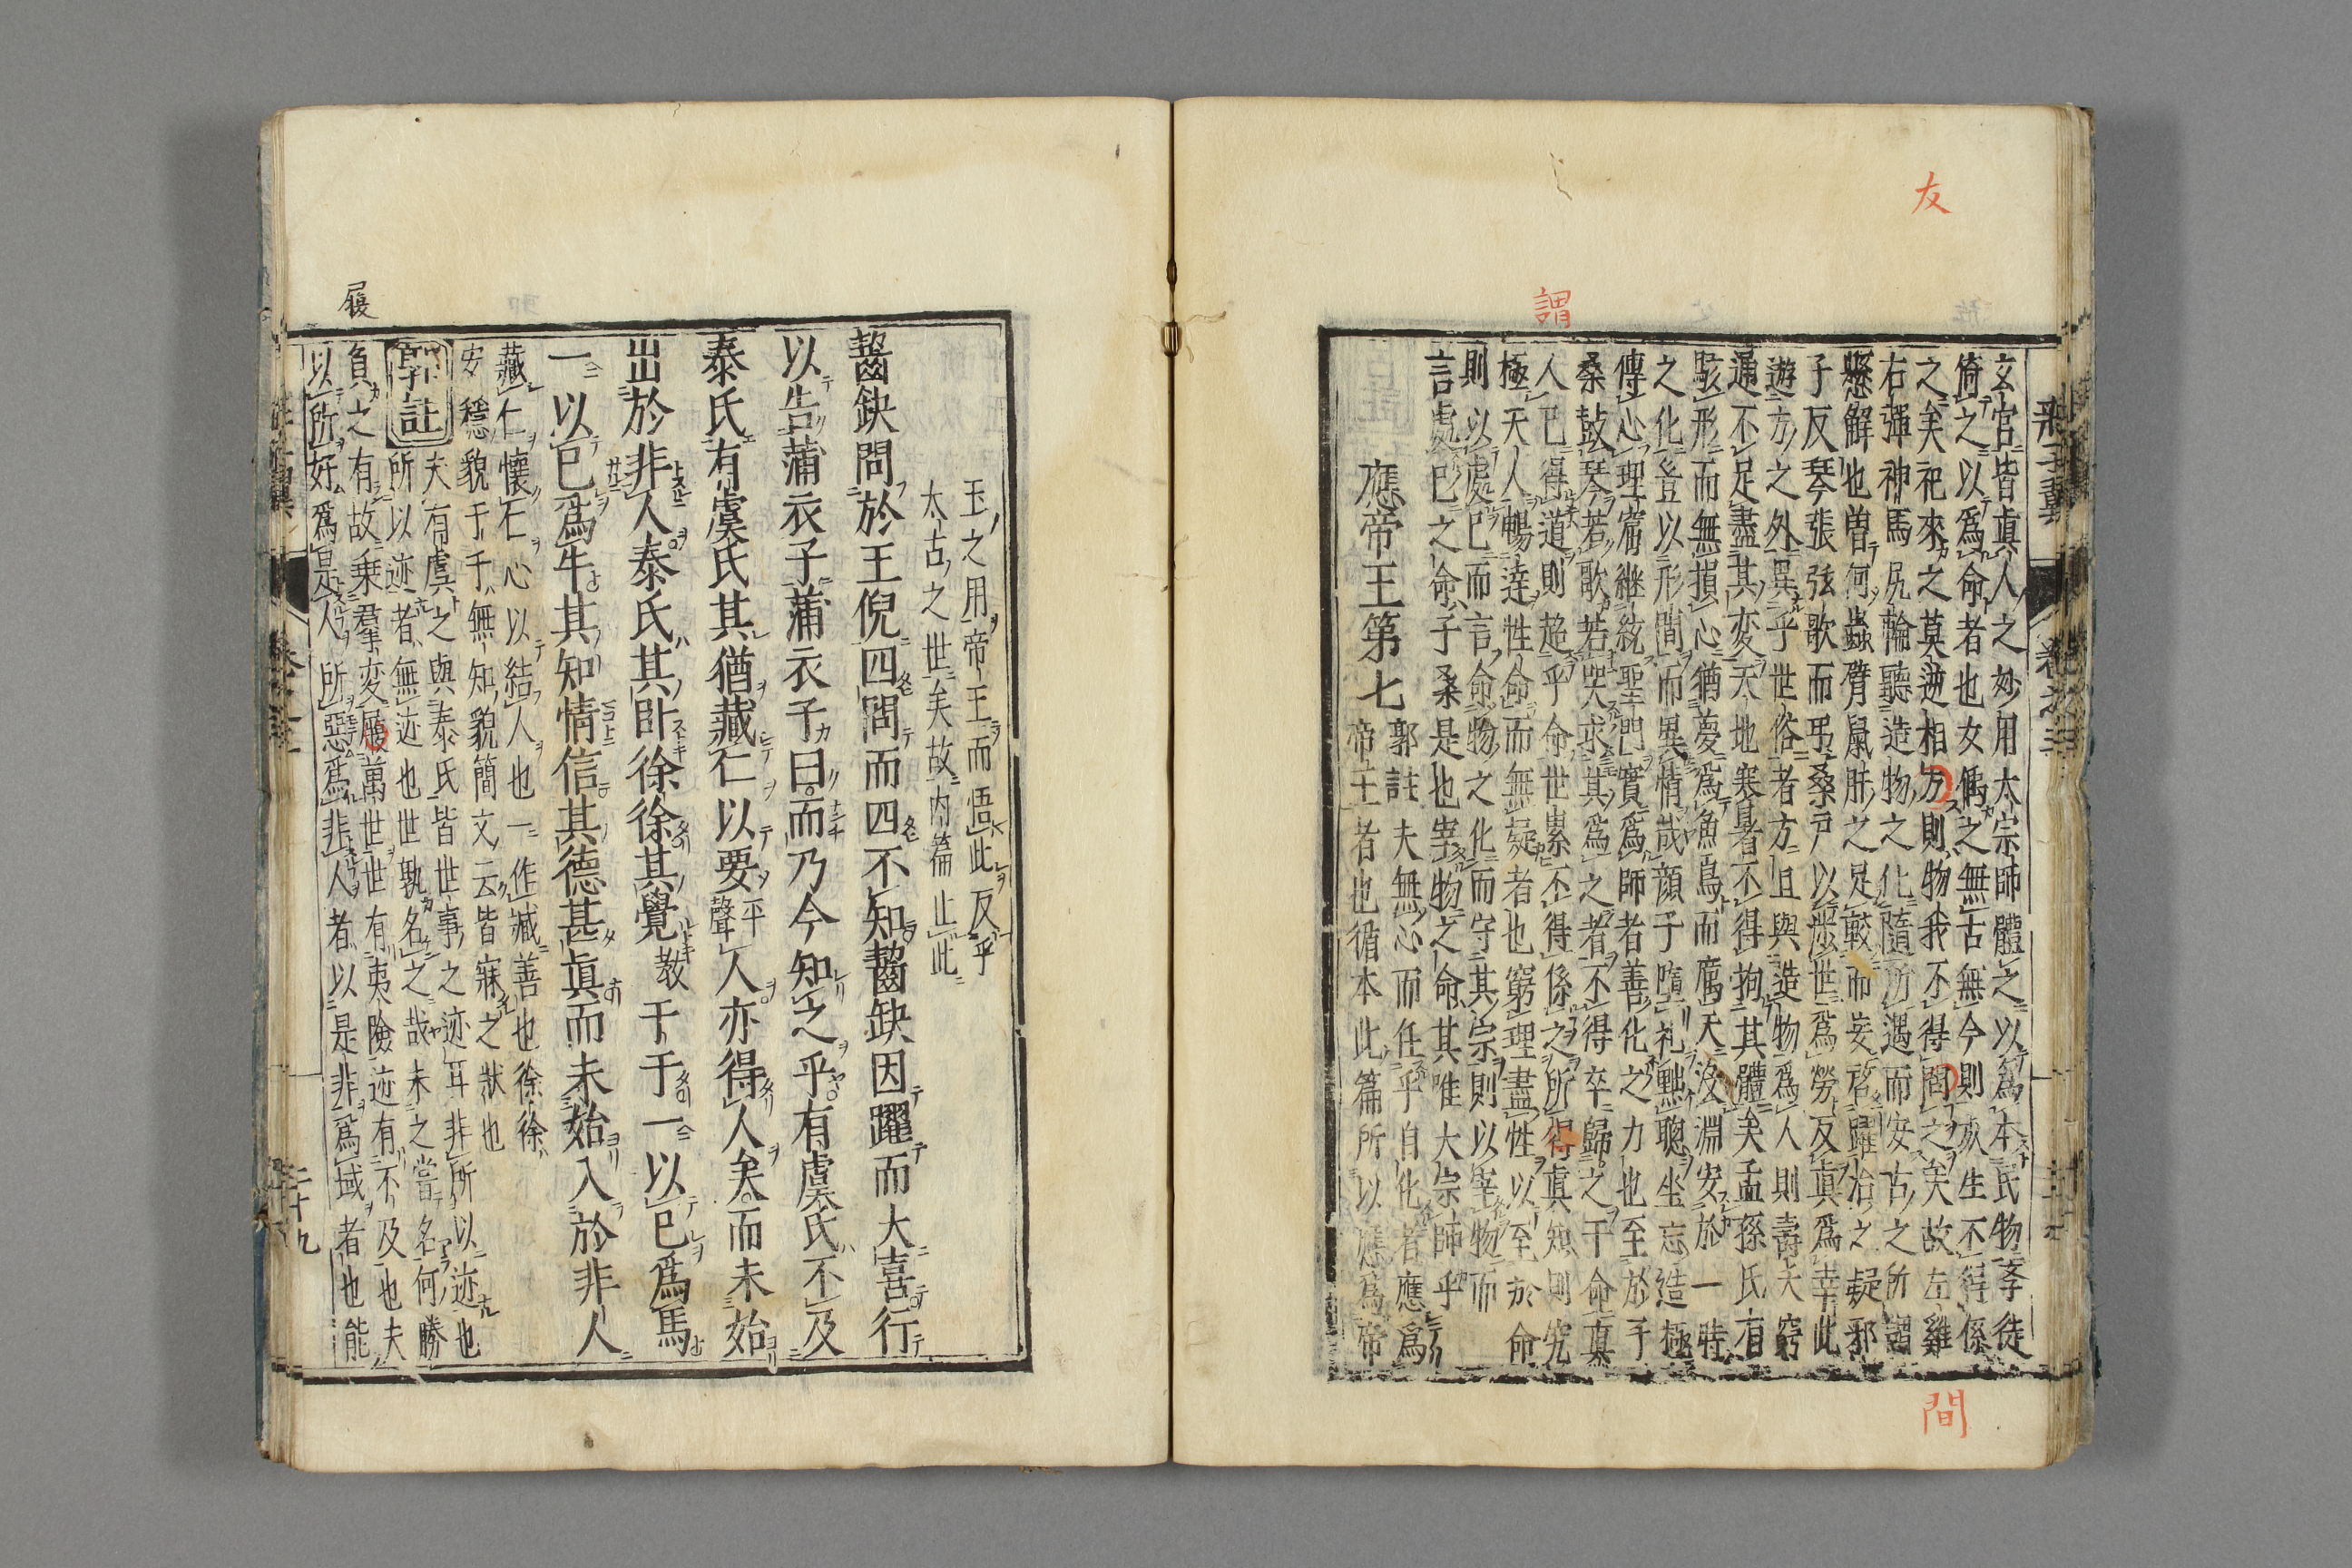 友
謂
間
玄宮皆眞人之妙用大宗師體之以爲本氏物孝徒
倚之以爲命者也女偊之無古無今則次生不得係
之矣祀來之莫逆相方則物我不得間之矣故左雞
右彈神馬尻輪聽造物之化隨所遇而安古之所謂
懸解也曽何蟲臂鼠肝之足較而妄啓躍冶之疑邪
子反琴張弦歌而弔桑戸以涉世爲勞反眞爲幸此
遊方之外異乎世俗者方且與造物爲人則壽夭窮
通不足盡其変天地寒暑不得拘其體矣孟孫氏有
駭形而無損心猶夢爲魚鳥而厲天沒淵安於一時
之化豈以形間而異情哉顔子墮礼黜聰坐忘造極
傳心理窟継統聖門實爲師者善化之力也至於子
桑鼓琴若歌若哭求其爲之者不得卒歸之于命眞
人已得道則超乎命世累不得係之所得眞知則究
極天人暢達性命而無疑者也窮理盡性以至於命
則以處已而言命物之化而守其宗則以宰物而
言處已之命子桑是也宰物之命其唯大宗師乎
應帝王第七
郭註夫無心而任乎自化者應爲
帝王者也循本此篇所以應爲帝
莊子翼
卷之二
王之用帝王而悟此反乎
太古之世矣故内篇止此
齧缺問於王倪四問而四不知齧缺因躍而大喜行
以告蒲衣子蒲衣子曰而乃今知之乎有虞氏不及
泰氏有虞氏其猶藏仁以要平聲人亦得人矣而未始
出於非人泰氏其臥徐徐其覺教于于一以已爲馬
一以已爲牛其知情信其德甚眞而未始入於非人
藏仁懷仁心以結人也一作臧善也徐徐
安穩貌于于無知貌簡文云皆寐之狀也
郭註
夫有虞之與泰氏皆世事之迹耳非所以迹也
所以迹者無迹也世孰名之哉未之當名何勝
負之有故乗羣変履萬世世有夷險迹有不及也夫
以所好爲是人所惡爲非人者以是非爲域者也能
履
二十九